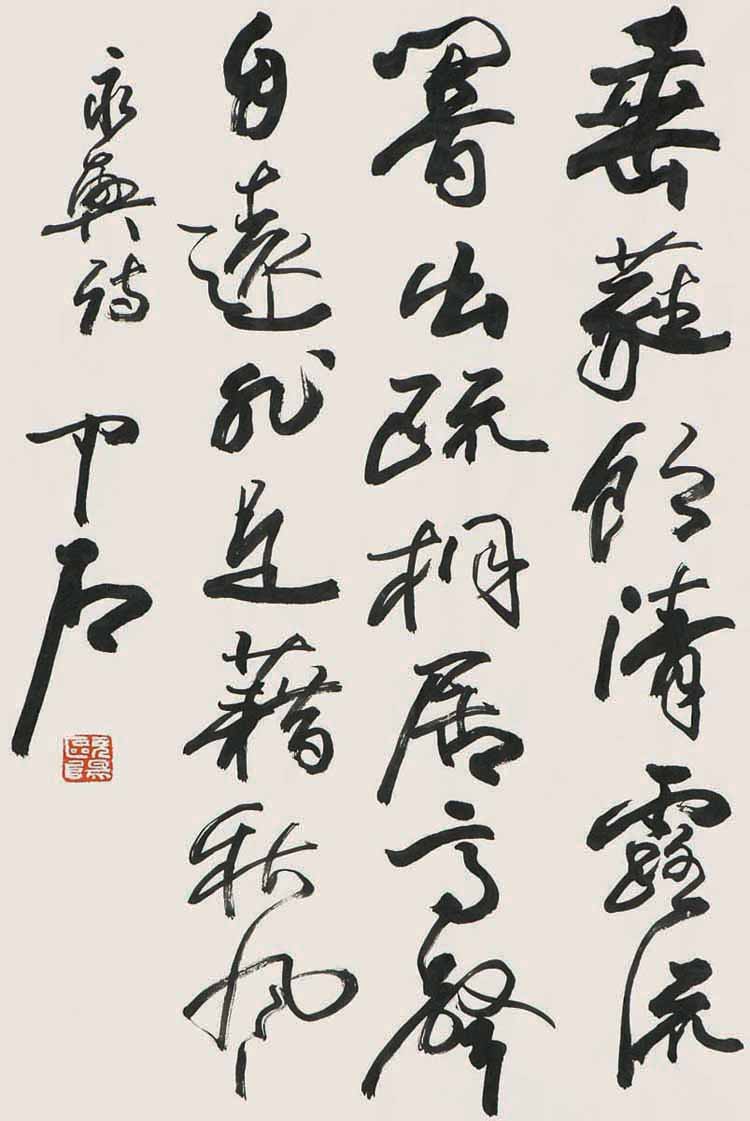 垂蕤飲清露流
響出疏桐居高聲
自遠非是藉秋風
永興詩
中石